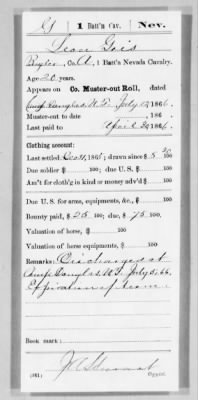 G | 1 Batt'n Cav. | Nev.
Leon Gris
Bugler, Co. A, 1 Batt'l Nevada Cavalry.
Age 20 years.
Appears on Co. Muster-out Roll, dated
Camp Douglas, U.T. July 12, 1866.
Muster-out to date , 186 .
Last paid to April 30, 1866.
Clothing account:
Last settled, Oct 31, 1865; drawn since $ 5 20/100
Due soldier $ 100; due U. S. $ 100
Am't for cloth'g in kind or money adv'd $ 100
Due U. S. for arms, equipments, &c., $ 100
Bounty paid, $ 25 100; due $ 75 100
Valuation of horse, $ 100
Valuation of horse equipments, $ 100
Remarks: Discharged at
Camp Douglas U.T. July 5, 66.
Expiration of term.
Book mark:
(361) Copyist.